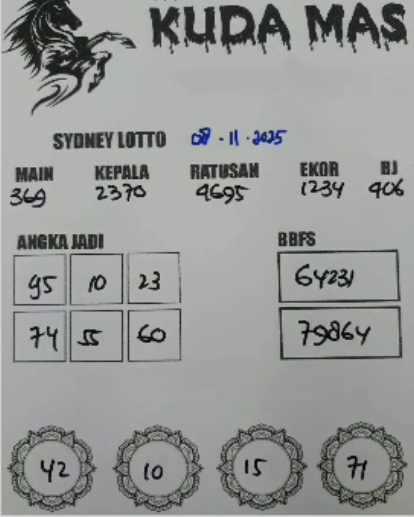 KUDA MAS
SYDNEY LOTTO 08-11-2025
MAIN KEPALA RATUSAN EKOR BJ
369 2370 4695 1234 406
ANGKA JADI BBFS
95 10 23 64231
74 55 60 79864
42 10 15 71